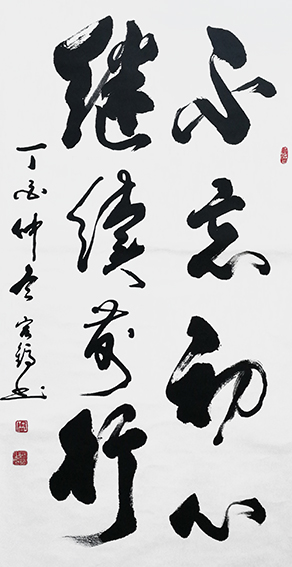 不忘初心
继续前行
丁酉仲冬 书